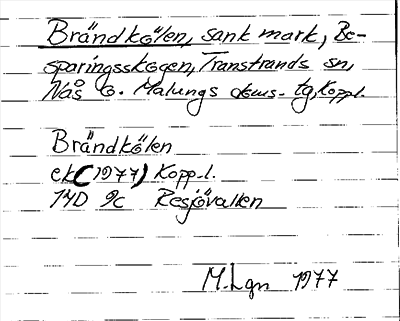 Brändkölen, sank mark, Be-
sparingsskogen, Transtrands sn,
Nås o. Malungs doms. tg, Koppl.
Brändkölen
ek (1977) Koppl.
14D 9c Resjövallen
M. Lgn 1977